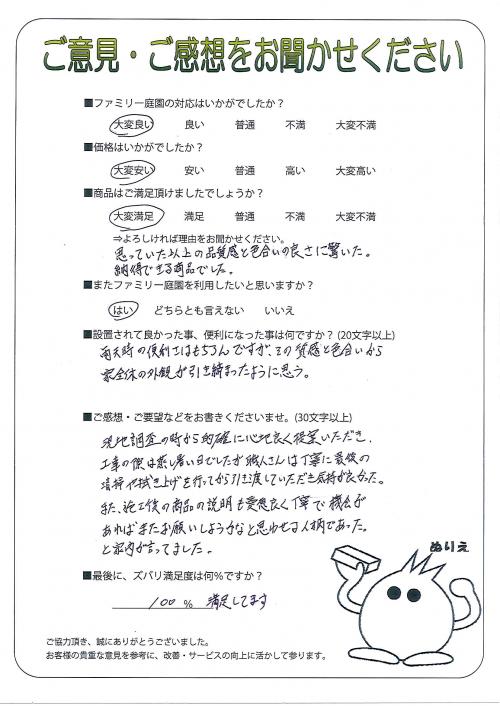 ご意見・ご感想をお聞かせください
■ファミリー庭園の対応はいかがでしたか？
大変良い 良い 普通 不満 大変不満
■価格はいかがでしたか？
大変安い 安い 普通 高い 大変高い
■商品はご満足頂けましたでしょうか？
大変満足 満足 普通 不満 大変不満
⇒よろしければ理由をお聞かせください。
思っていた以上の品質感と色合いの良さに驚いた。
納得できる商品でした。
■またファミリー庭園を利用したいと思いますか？
はい どちらとも言えない いいえ
■設置されて良かった事、便利になった事は何ですか？(20文字以上)
雨天時の便利さはもちろんですが、その質感と色合いから
家全体の外観が引き締まったように思う。
■ご感想・ご要望などをお書きくださいませ。(30文字以上)
現地調査の時から的確に心地良く提案いただき、
工事の際は蒸し暑い日でしたが職人さんは丁寧に最後の
清掃や拭き上げを行ってから引き渡していただき気持が良かった。
また、施工後の商品の説明も愛想良く丁寧で機会が
あればまたお願いしようかなと思わせる人柄であった。
と家内が言ってました。
ぬりえ
■最後に、ズバリ満足度は何％ですか？
100 ％ 満足してます
ご協力頂き、誠にありがとうございました。
お客様の貴重な意見を参考に、改善・サービスの向上に活かして参ります。